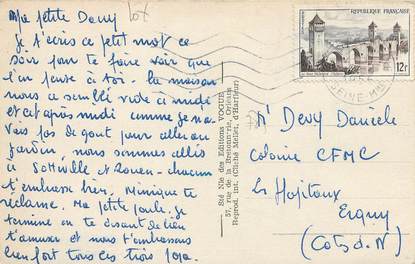 Ma petite Dany
Je t'écris ce petit mot ce
soir pour te faire voir que
l'on pense à toi. La maison
nous a semblé vide ce midi
et cet après midi comme je n'a-
vais pas de gout pour aller au
jardin, nous sommes allés
à Sotteville et Rouen. chacun
t'embrasse bien. Minique te
réclame. Ma petite poule je
termine en te disant de bien
t'amuser et nous t'embrassons
bien fort tous les trois
Sté Nlle des Editions VOGUE
57, rue de la Bretonnerie, Orléans
Reprod. Int. (Cliché Mellet, d'Harfleur)
REPUBLIQUE FRANÇAISE
12f
SEINE-Mme
Devy Danièle
Colonie CFMC
Les Hopitaux
Erquy
(Côtes d. N)